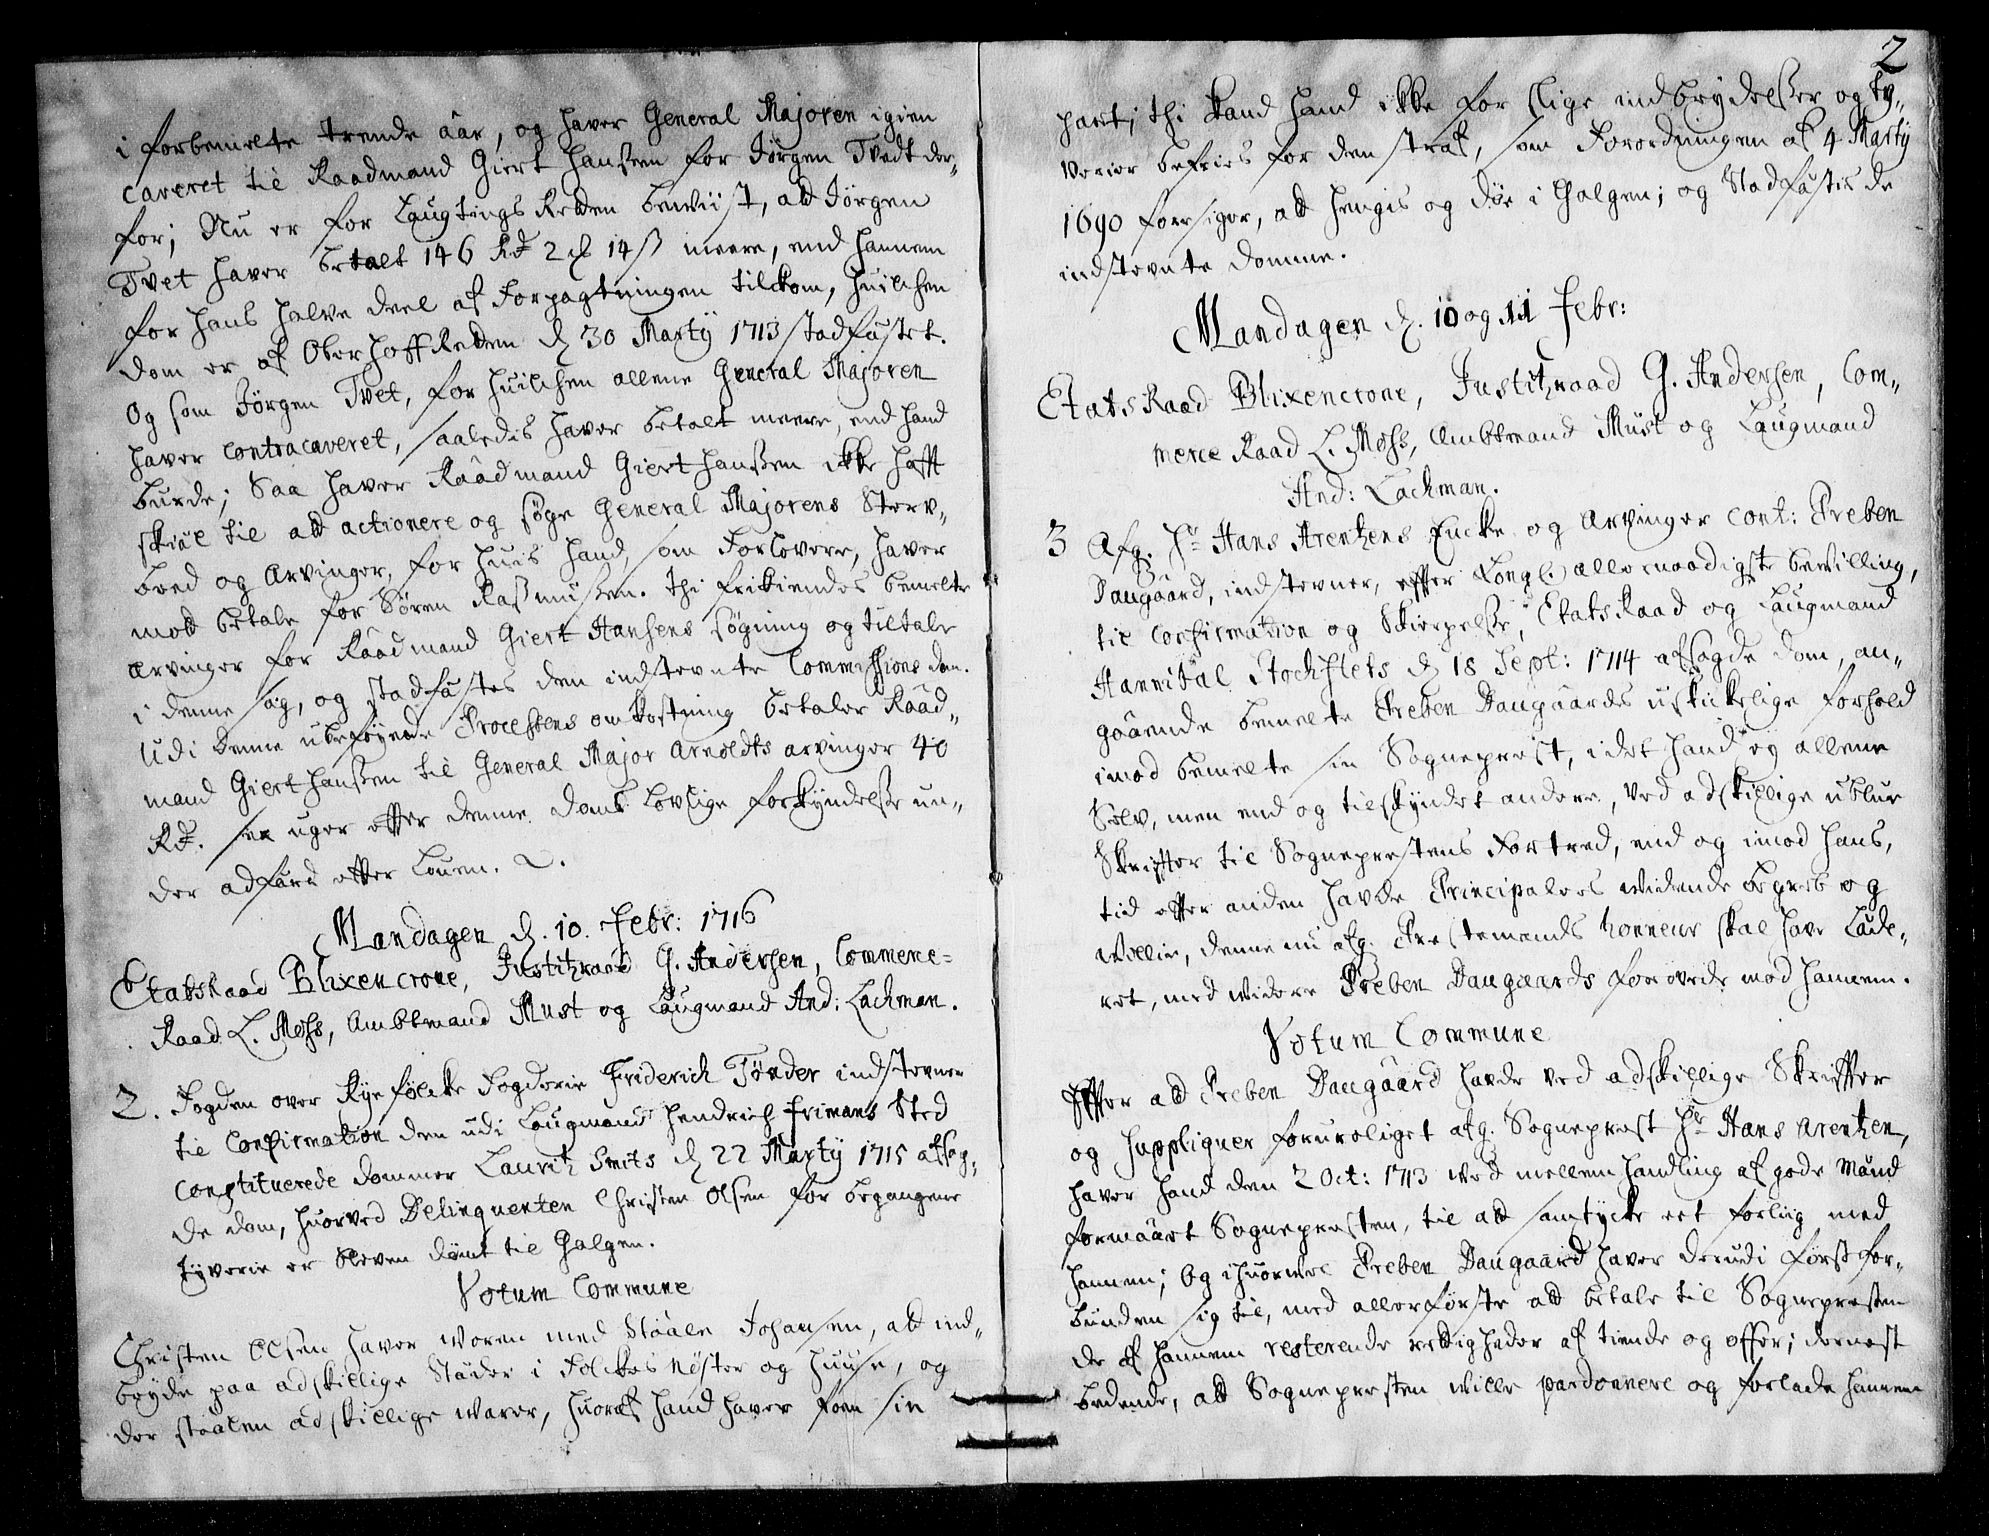 i forbemelte trende aar, og haver General Majoren igien
caveret til Raadmand Giert Hanssen for Jørgen Tvedt der„
for; Nu er for Laugtings Retten beviist, att Jørgen
Tvet haver betalt 146 Rd 2 ꝧ 14 ß meere, end hannem
for hans halve deel af Forpagtningen tilkom, huilchen
dom er af OberhoffRetten d. 30 Marty 1713 stadfæstet.
Og som Jørgen Tvet, for huilchen allene General Majoren
haver contracaveret, saaledes haver betalt meere, end hand
burde; Saa haver Raadmand Giert Hanssen ikke hafft
skiæl til att actionere og søge General Majorens Sterv„
boed og Arvinger, for huis hand, som Forlovere, haver
mott betale for Søren Rasmussen. thi frikiendes bemelte
Arvinger for Raadmand Giert Hansens søgning og tiltale
i denne sag, og stadfæstes den indstevnte Commissions dom.
Udi denne ubeføyede Processens omkostning betaler Raad„
mand Giert Hanssen til General Major Arnoldts arvinger 40
Rd. sex uger efter denne doms lovlige forkyndelsse un„
der adfærd effter Louen.
Mandagen d. 10. Febr: 1716
EtatsRaad Blixencrone, Justitzraad G. Andersen, Commerce=
Raad L. Mohs, Ambtmand Must og Laugmand And: Lachman.
2. Fogden over Ryefølcke Fogderie Friderich Tønder indstevner
til Confirmation den udi Laugmand Hendrich Frimans Sted
constituerede dommer Lauritz Smits d 22 Marty 1715 afsag„
de dom, huorved Delinquenten Christen Olsen for begangene
tyverie er bleven dømt til Galgen.
Votum Commune
Christen Olsen haver woren med Staale Johansen, att ind„
bryde paa adskillige Stæder i Folckes Nøster og Huuse, og
der staalen adskillige warer, huoraf hand haver faaen sin
2
part; thi kand hand ikke for slige indbrydelsser og Ty„
verier befries for den straf, som Forordningen af 4 Marty
1690 foersiger, att hengis og døe i Galgen; og Stadfæstis de
indstevnte domme.
Mandagen d. 10 og 11 Febr:
EtatsRaad Blixencrone, Justitzraad G. Andersen, Com„
merce Raad L. Mohs, Ambtmand Must og Laugmand
And: Lachman.
3 Afg. Hr Hans Arentzens Encke og Arvinger cont: Preben
Daugaard, indstevner, effter Kongl. allernaadigste bevilling,
til Confirmation og Skierpelsse, EtatsRaad og Laugmand
Hannibal Stochflets d 18 Sept: 1714 afsagde dom, an„
gaaende bemelte Preben Daugaards uskickelige forhold
imod bemelte sin Sogneprest, idet hand ey allene
Selv, men end og tilskyndet andere, ved adskillige ublue
Skriffter til Sogneprestens Fortred, end og imod hans,
tid effter anden havde Principalers widende begreb og
willie, denne nu afg. Prestemands honneur skal have Læde„
ret, med widere Preben Daugaards foerende mod hannem.
Votum Commune
Effter att Preben Daugaard havde ved adskillige Skriffter
og Suppliquer foruroliget afg. Sogneprest Hr Hans Arentzen,
haver hand den 2 Oct: 1713 ved mellem handling af gode Mænd
formaaet Sognepresten, til att samtycke eet forliig med
hannem; Og ihuorvel Preben Daugaard haver derudi først for„
bunden sig til, med allerførste att betale til Sognepresten
de af hannem resterende rettigheder af tiende og offer; dernest
bedende, att Sognepresten wille pardonnere og forlade hannem